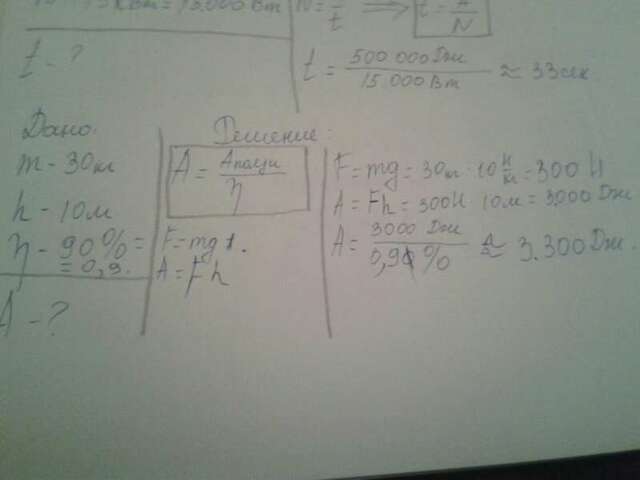 15 кВт = 15.000 Вт
N = t
t = N
t - ?
t = 500 000 Дж / 15 000 Вт ≈ 33 сек
Дано:
m - 30 кг
h - 10 м
η - 90% =
= 0,9.
A - ?
Решение:
A = Aполезн / η
F = mg
A = Fh
F = mg = 30 кг · 10 Н/кг = 300 Н
A = Fh = 300 Н · 10 м = 3000 Дж
A = 3000 Дж / 0,9 % ≈ 3.300 Дж.